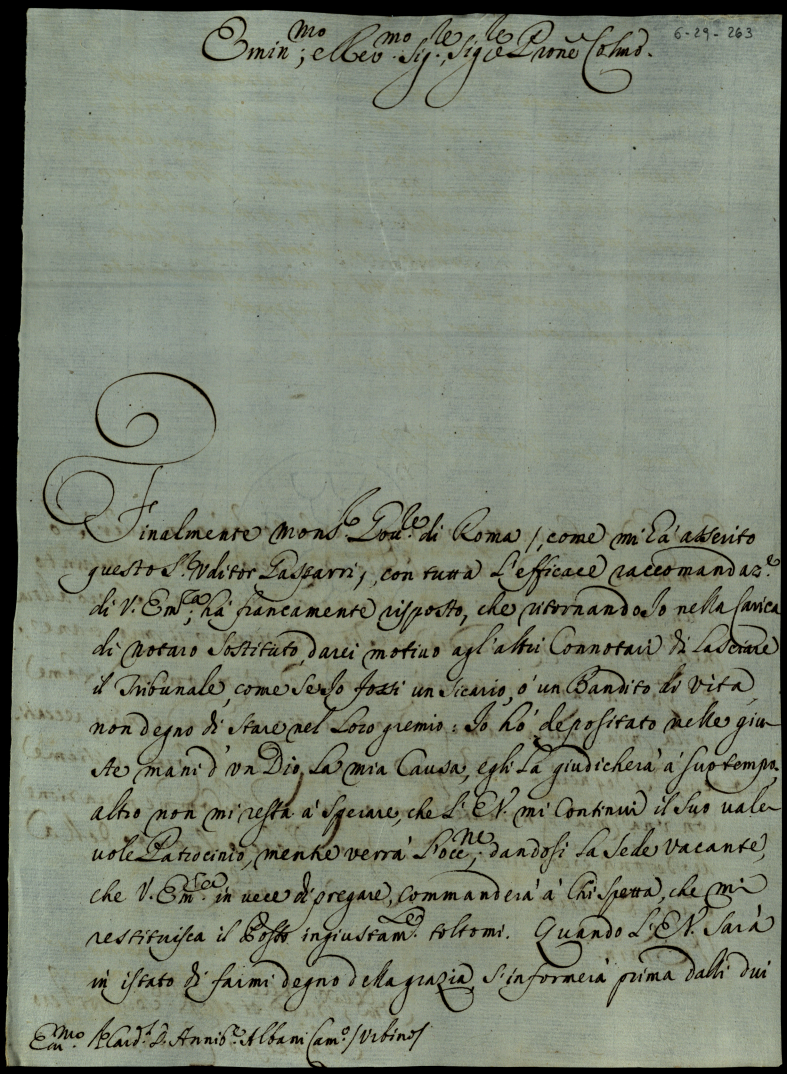 6-29-263
Emin.mo, e Rev.mo Sig.re, Sig.re e Prone Colmo.
Finalmente Mons.r Gov.re di Roma /, come mi há asserito
questo S.r Uditor Gasparri /, con tutta l'efficace raccomandaz.e
di V. Em.za, há francamente risposto, che ritornando Io nella Carica
di Notaro Sostituto, darei motivo agl'altri Connotari di lasciare
il Tribunale, come se Io fossi un Sicario, ó un Bandito di vita,
non degno di stare nel loro gremio: Io hó depositato nelle giu-
ste mani d'un Dio la mia Causa, egli la giudicherá á suo tempo,
altro non mi resta á sperare, che l'E.V. mi Continui il suo vale-
vole Patrocinio, mentre verrá l'occ.ne, dandosi la Sede vacante,
che V. Em.za in vece di pregare, commanderá á Chi spetta, che mi
restituisca il Posto ingiustam.te toltomi. Quando l'E.V. sará
in istato di farmi degno della grazia, s'informerá prima dalli dui
Em.mo Card.l D. Annib.e Albani Cam.o / Urbino /